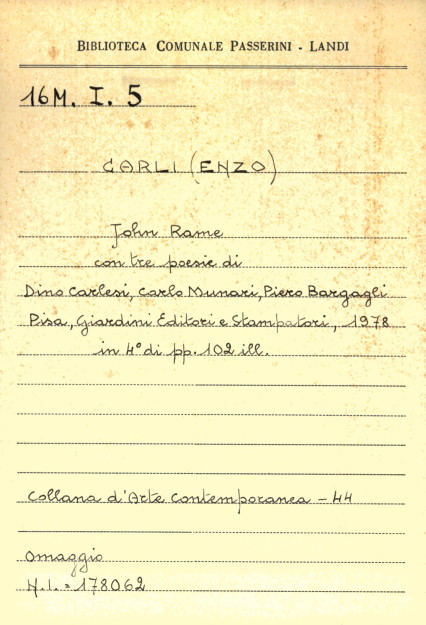 BIBLIOTECA COMUNALE PASSERINI - LANDI
16M. I. 5
CARLI (ENZO)
John Rame
con tre poesie di
Dino Carlesi, Carlo Munari, Piero Bargagli
Pisa, Giardini Editori e Stampatori, 1978
in 4° di pp. 102 ill.
Collana d'Arte Contemporanea - 44
Omaggio
N.I. = 178062